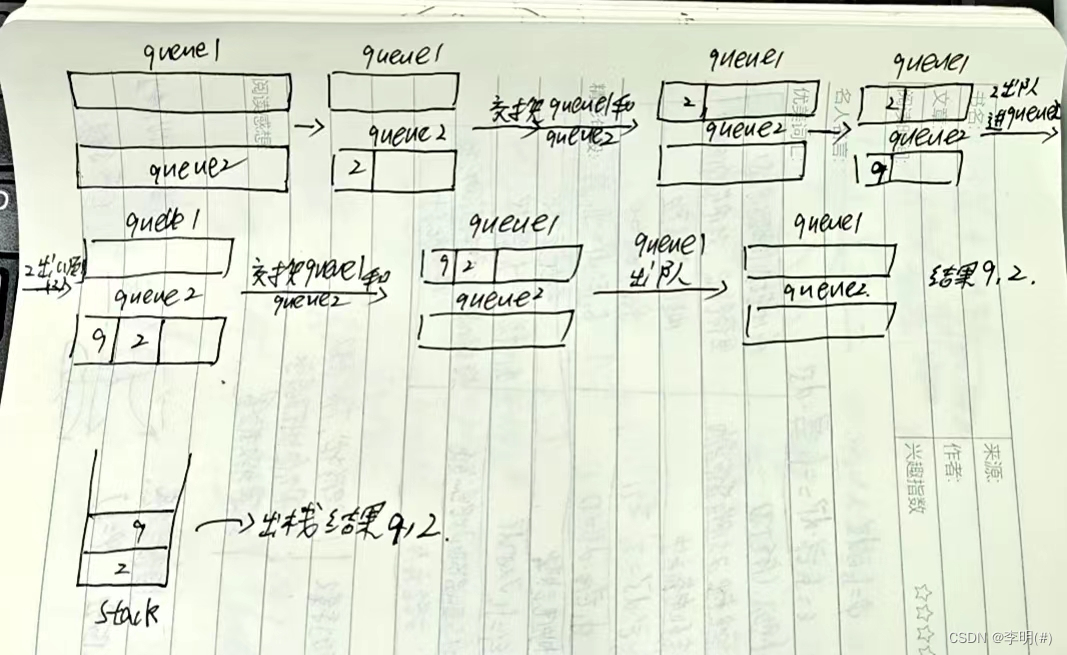 queue1
queue2
queue1
queue2
2
交换queue1和
queue2
queue1
2
queue2
queue1
2
queue2
9
2出队
进queue2
queue1
queue2
9 2
交换queue1和
queue2
queue1
9 2
queue2
queue1
出队
queue1
queue2.
结果9,2.
9
2
stack
出栈结果9,2.
阅读感想
优美词汇:
名人名言:
文章
书名:
来源:
作者:
兴趣指数
☆☆☆☆
CSDN @李明(#)